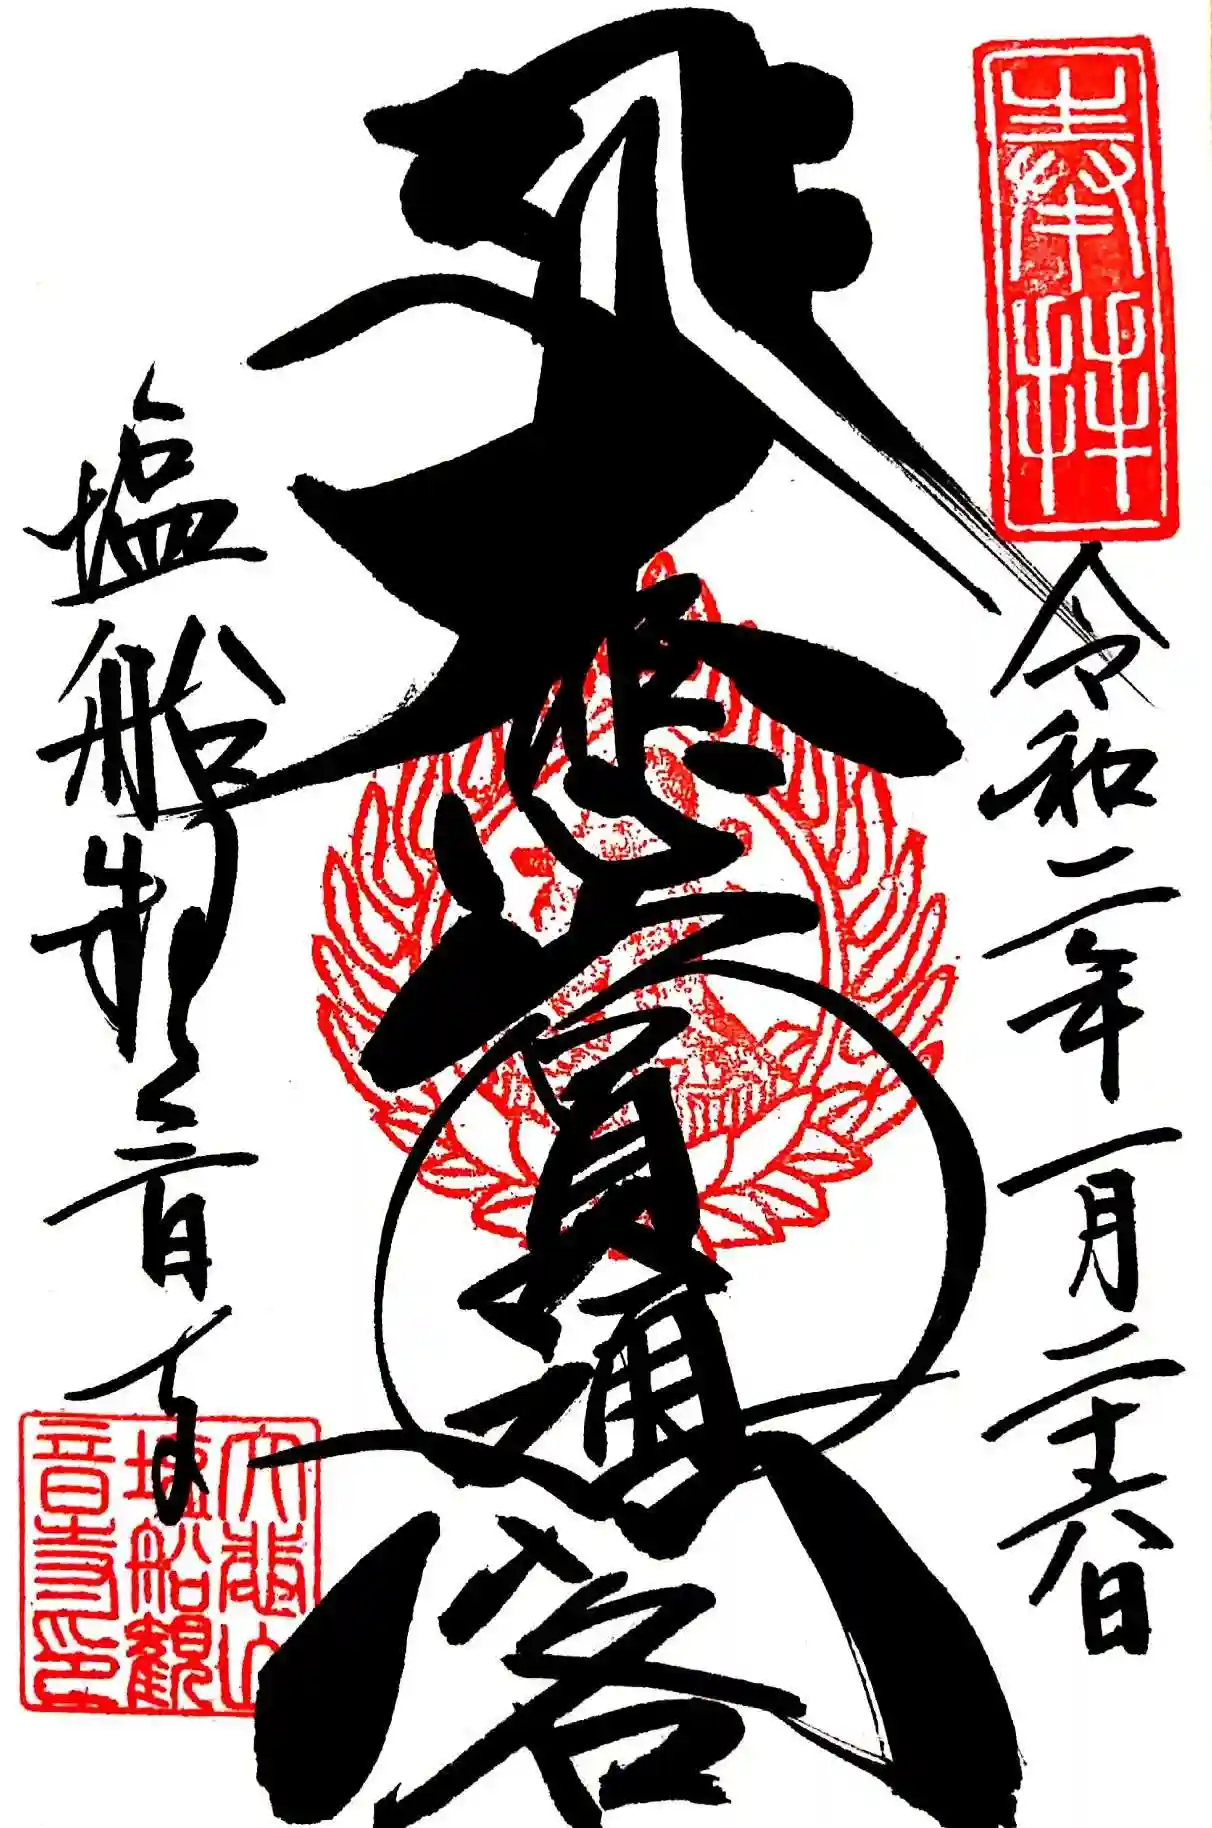 奉拝
令和二年一月二十六日
大悲圓通閣
塩船観音寺
大悲山
塩船觀
音寺印